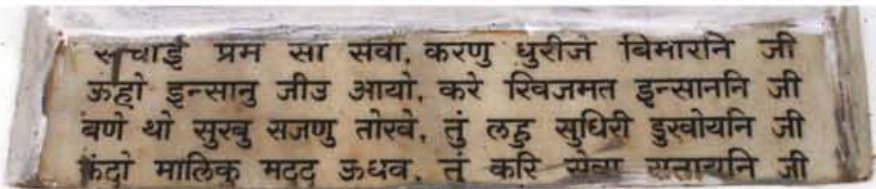 सचाई प्रेम सा सेवा, करणु घुरीजे बिमारनि जी
ऊंहो इन्सानु जीउ आयो, करे खिजमत इन्साननि जी
बणे थो सुखु सजणु तोखे, तुं लहु सुधिरी डुखोयनि जी
कंदो मालिकु मदद ऊधव, तूं करि सेवा सतायनि जी